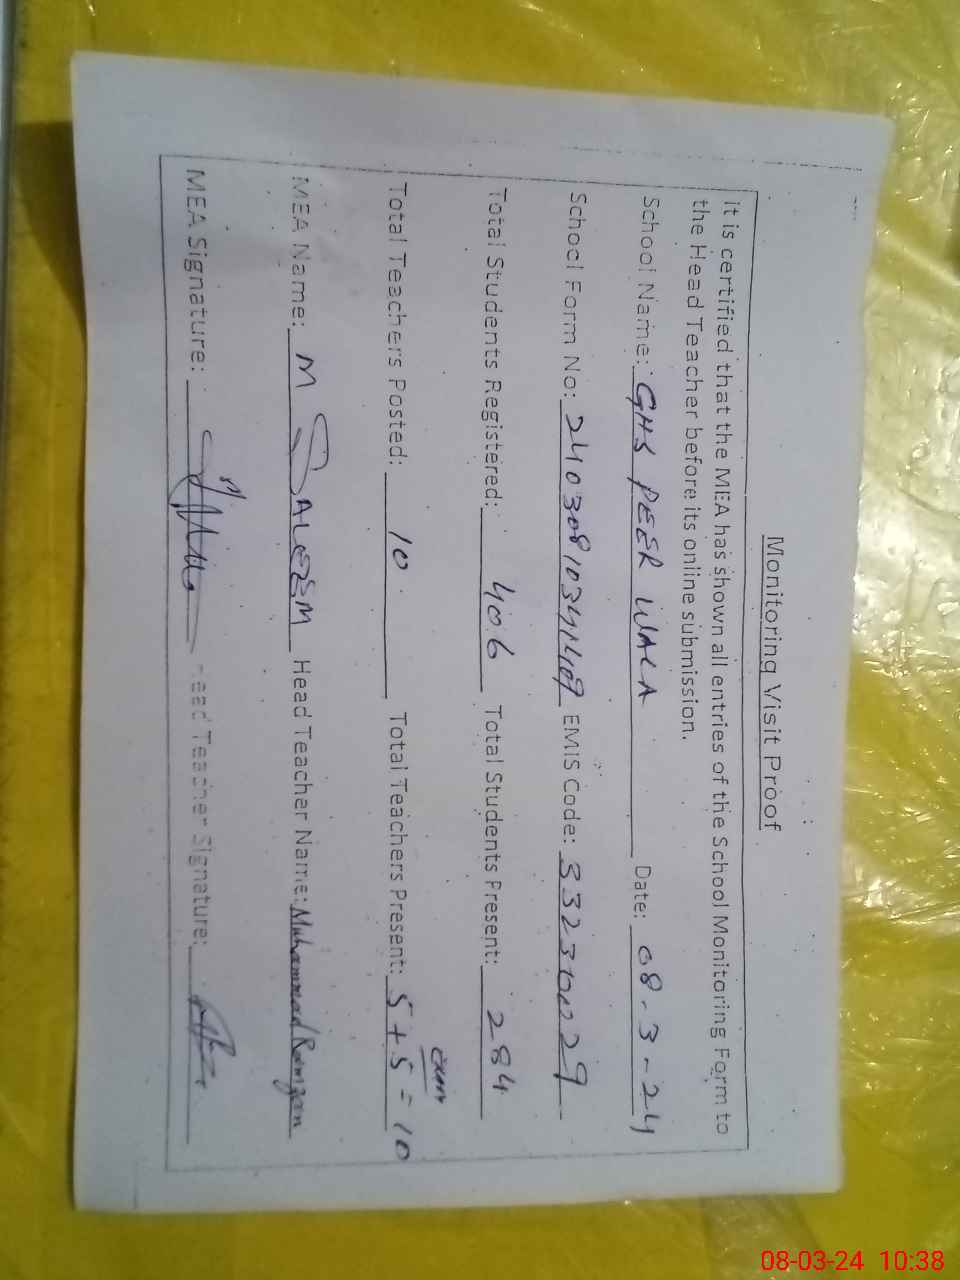 Monitoring Visit Proof
it is certified that the MEA has shown all entries of the School Monitoring Form to
the Head Teacher before its online submission.
School Name: GHS PEER WALA Date: 08-3-24
School Form No: EMIS Code:
Total Students Registered: 406 Total Students Present: 284
exam
Total Teachers Posted: 10 Total Teachers Present: 5+5=10
MEA Name: M SALEEM Head Teacher Name: Muhammad Ramzan
MEA Signature: Head Teacher Signature:
08-03-24 10:38